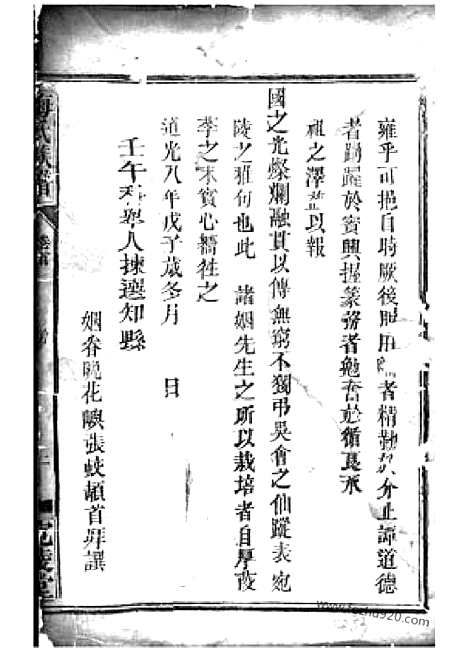 雍乎可挹自時厥後服用 者精勤於分止譚道德
者踴躍於賓興握篆務者勉奮於循良永
祖之澤並以報
國之光燦爛融貫以傳無窮不獨弔吳會之仙蹤表宛
陵之雅句也此 諸姻先生之所以栽培者自厚葭
莩之末實心禱祝之
道光八年戊子歲冬月 日
壬午科舉人揀選知縣
姻眷晚花嶼張蛟頓首拜譔
梅氏族譜
卷首
宛陵堂